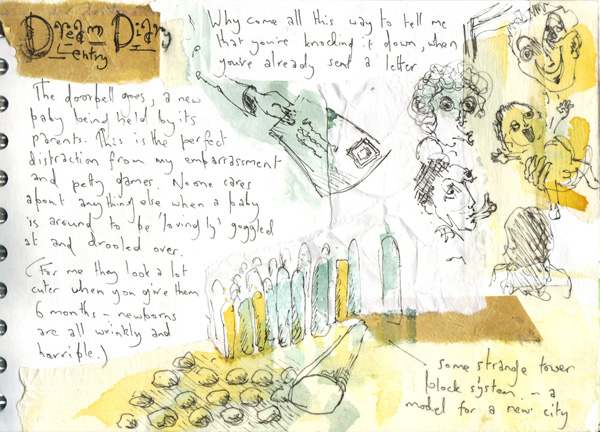 Dream Diary
entry
Why come all this way to tell me
that you're knocking it down, when
you've already send a letter
The doorbell goes, a new
baby being held by its
parents. This is the perfect
distraction from my embarrassment
and petty games. No one cares
about anything else when a baby
is around to be 'lovingly' goggled
at and drooled over.
(For me they look a lot
cuter when you give them
6 months – newborns
are all wrinkly and
horrible.)
some strange tower
block system. – a
model for a new city